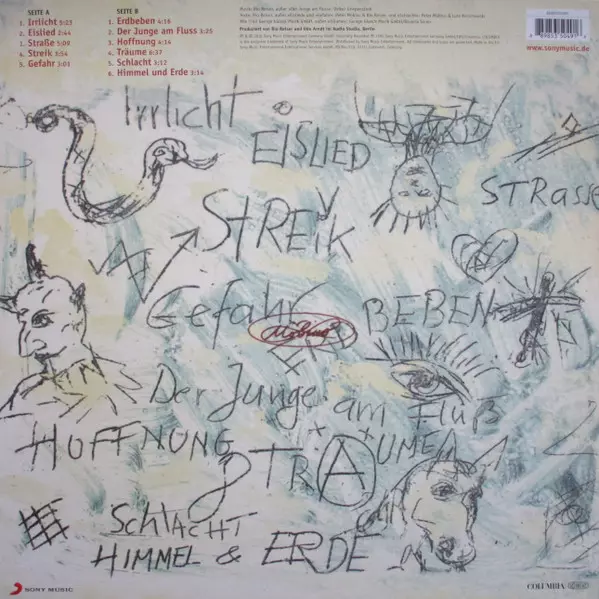 SEITE A
1. Irrlicht 5:23
2. Eislied 2:44
3. Straße 5:09
4. Streik 3:54
5. Gefahr 3:01
SEITE B
1. Erdbeben 4:16
2. Der Junge am Fluss 3:25
3. Hoffnung 4:14
4. Träume 6:37
5. Schlacht 3:12
6. Himmel und Erde 3:14
www.sonymusic.de
Irrlicht
EISLIED
STRASSE
STREIK
Gefahr
BEBEN
Der Junge am Fluß
HOFFNUNG
TRÄUME
SCHLACHT
HIMMEL & ERDE
SONY MUSIC
COLUMBIA